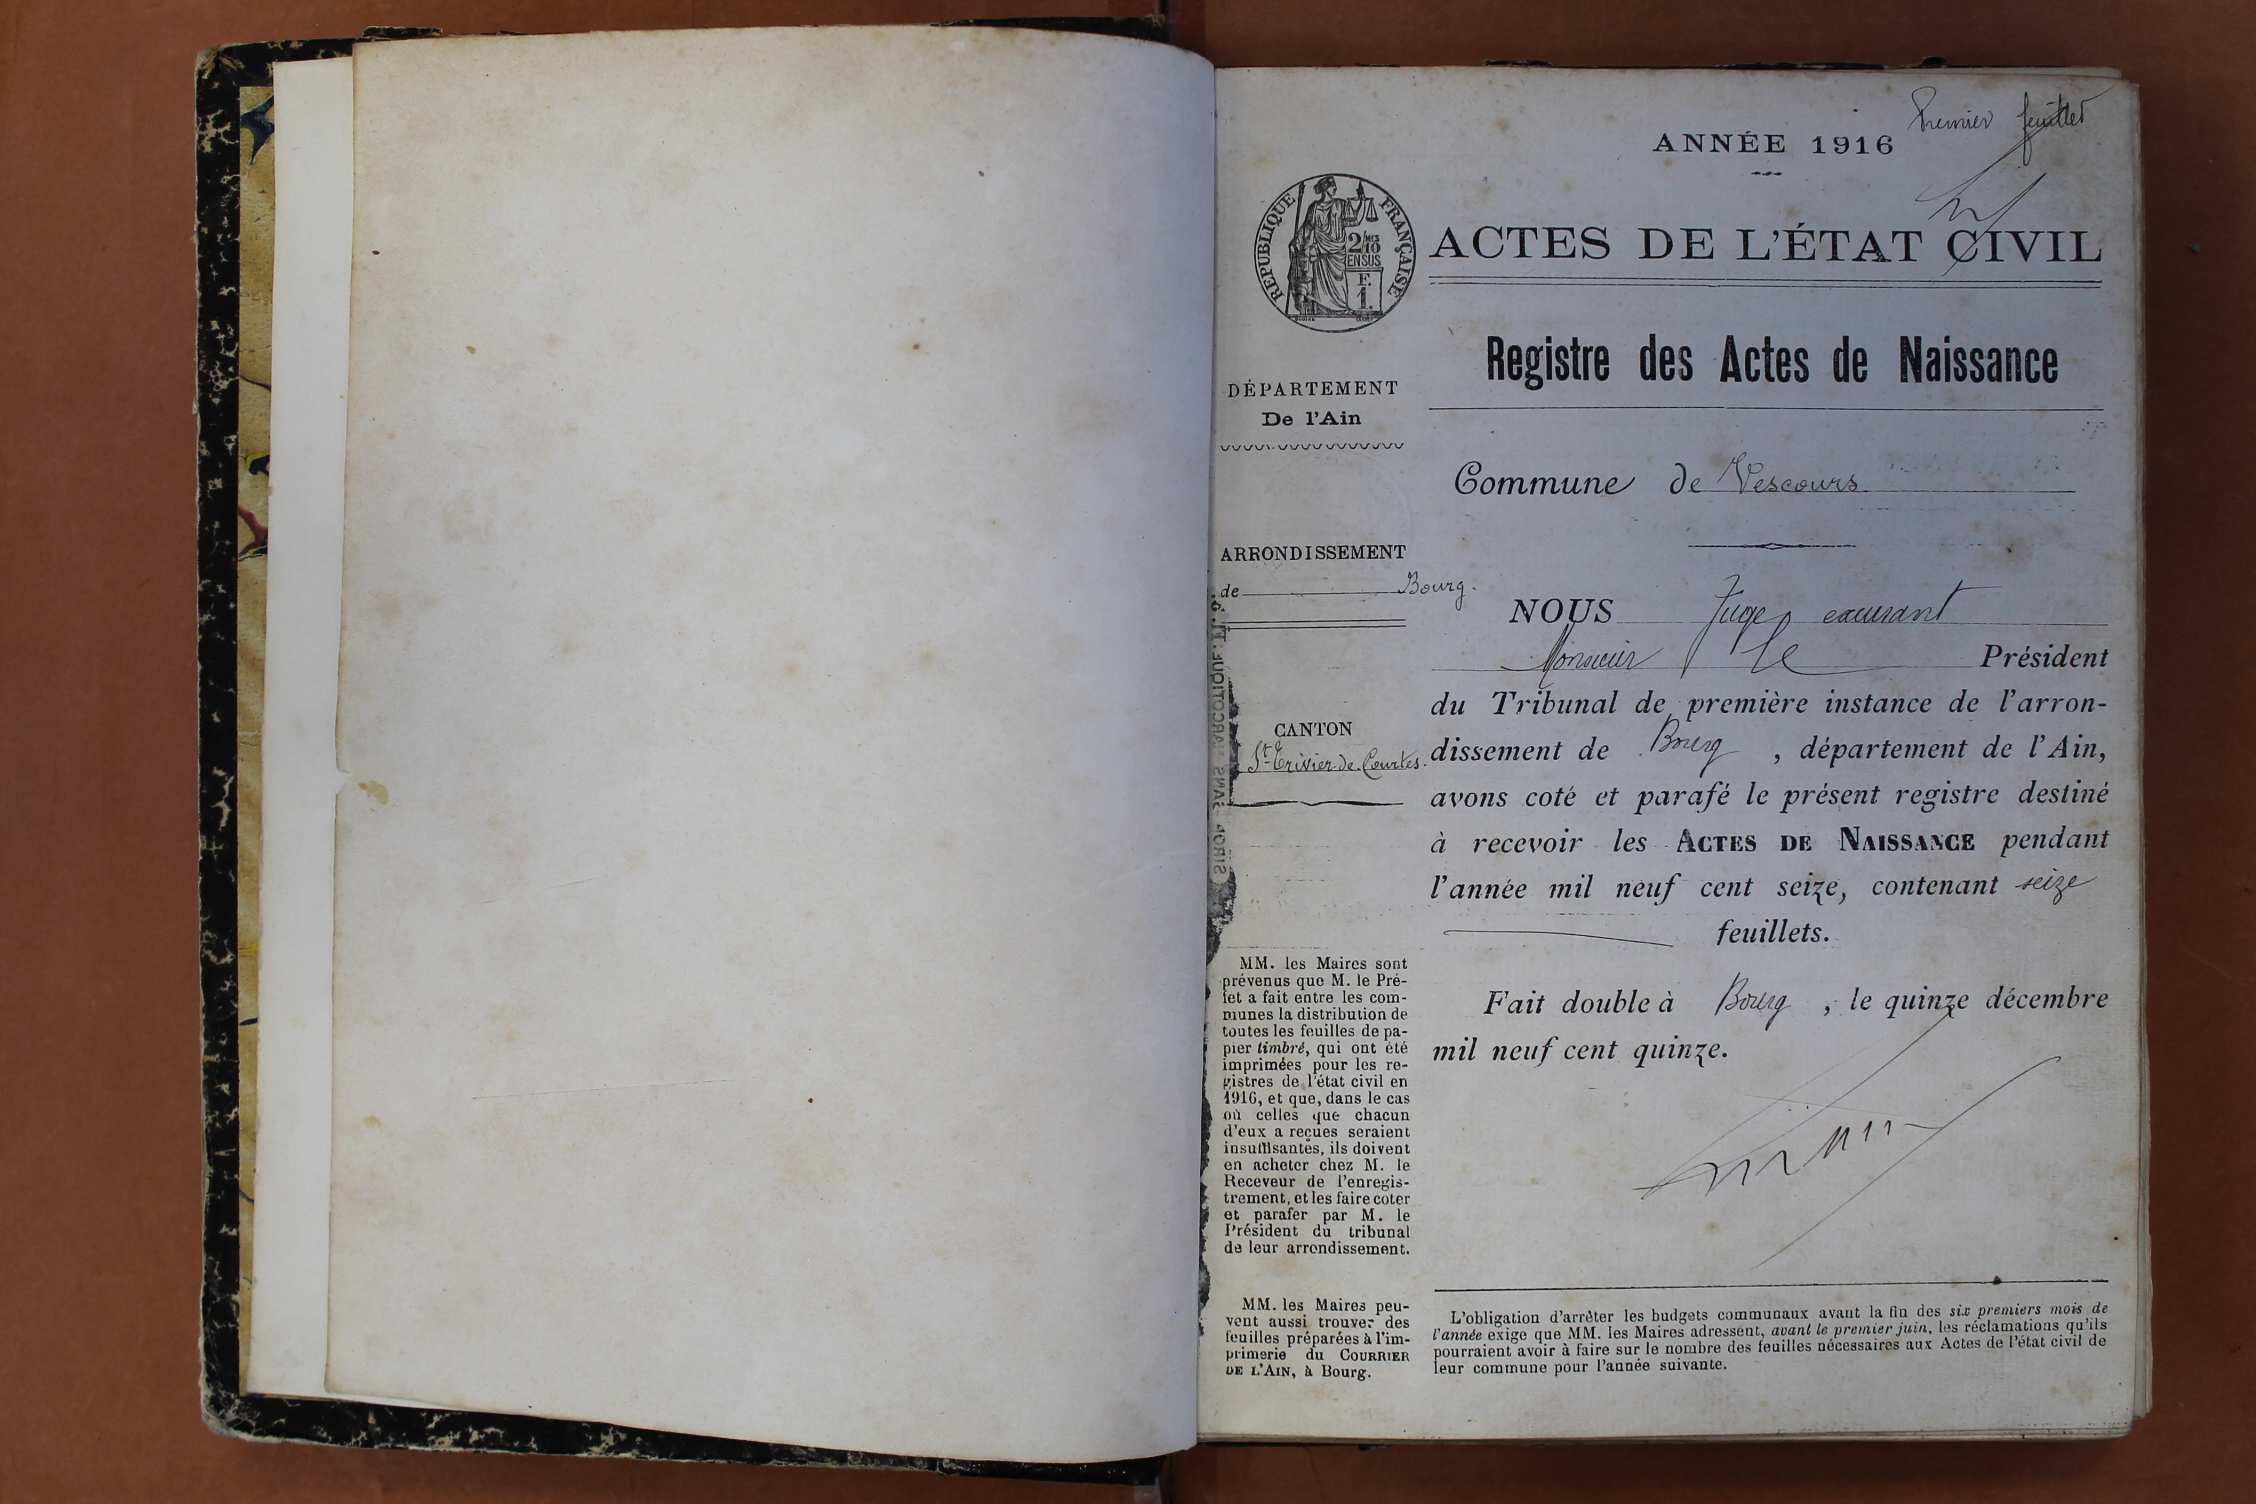 Premier feuillet
ANNÉE 1916
ACTES DE L'ÉTAT CIVIL
RÉPUBLIQUE FRANÇAISE
2/10 MES
EN SUS
F.
1.
Registre des Actes de Naissance
DÉPARTEMENT
De l'Ain
Commune de Vescours
ARRONDISSEMENT
de Bourg.
CANTON
St Trivier-de-Courtes.
NOUS Juge
Monsieur le Président
du Tribunal de première instance de l'arron-
dissement de Bourg, département de l'Ain,
avons coté et parafé le présent registre destiné
à recevoir les ACTES DE NAISSANCE pendant
l'année mil neuf cent seize, contenant seize
feuillets.
Fait double à Bourg, le quinze décembre
mil neuf cent quinze.
MM. les Maires sont
prévenus que M. le Pré-
fet a fait entre les com-
munes la distribution de
toutes les feuilles de pa-
pier timbré, qui ont été
imprimées pour les re-
gistres de l'état civil en
1916, et que, dans le cas
où celles que chacun
d'eux a reçues seraient
insuffisantes, ils doivent
en acheter chez M. le
Receveur de l'enregis-
trement, et les faire coter
et parafer par M. le
Président du tribunal
de leur arrondissement.
MM. les Maires peu-
vent aussi trouver des
feuilles préparées à l'im-
primerie du COURRIER
DE L'AIN, à Bourg.
L'obligation d'arrêter les budgets communaux avant la fin des six premiers mois de
l'année exige que MM. les Maires adressent, avant le premier juin, les réclamations qu'ils
pourraient avoir à faire sur le nombre des feuilles nécessaires aux Actes de l'état civil de
leur commune pour l'année suivante.